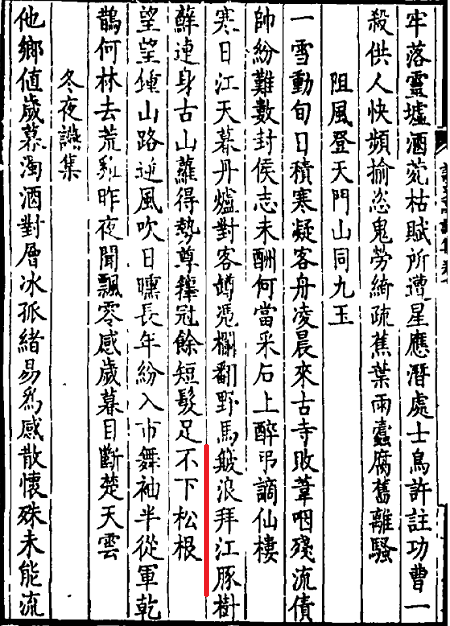 牢落靈墟酒枯賦所遭星應潛處士鳥許註功曹一
殺供人快頻揄恣鬼勞綺疏蕉葉雨蠹腐舊離騷
阻風登天門山同九玉
一雪動旬日積寒凝客舟凌晨來古寺敗葦咽殘流債
帥紛難數封侯志未酬何當采石上醉弔謫仙樓
寒日江天暮丹爐對客罇凭欄翻野馬浪拜江豚樹
蘚連身古山蘿得勢尊籜冠餘短髮足不下松根
望望鍾山路逆風吹日曛長年紛入市舞袖半從軍乾
鵲何林去荒雞昨夜聞飄零感歲暮目斷楚天雲
冬夜讌集
他鄉值歲暮濁酒對層冰孤緒易爲感散懷殊未能流